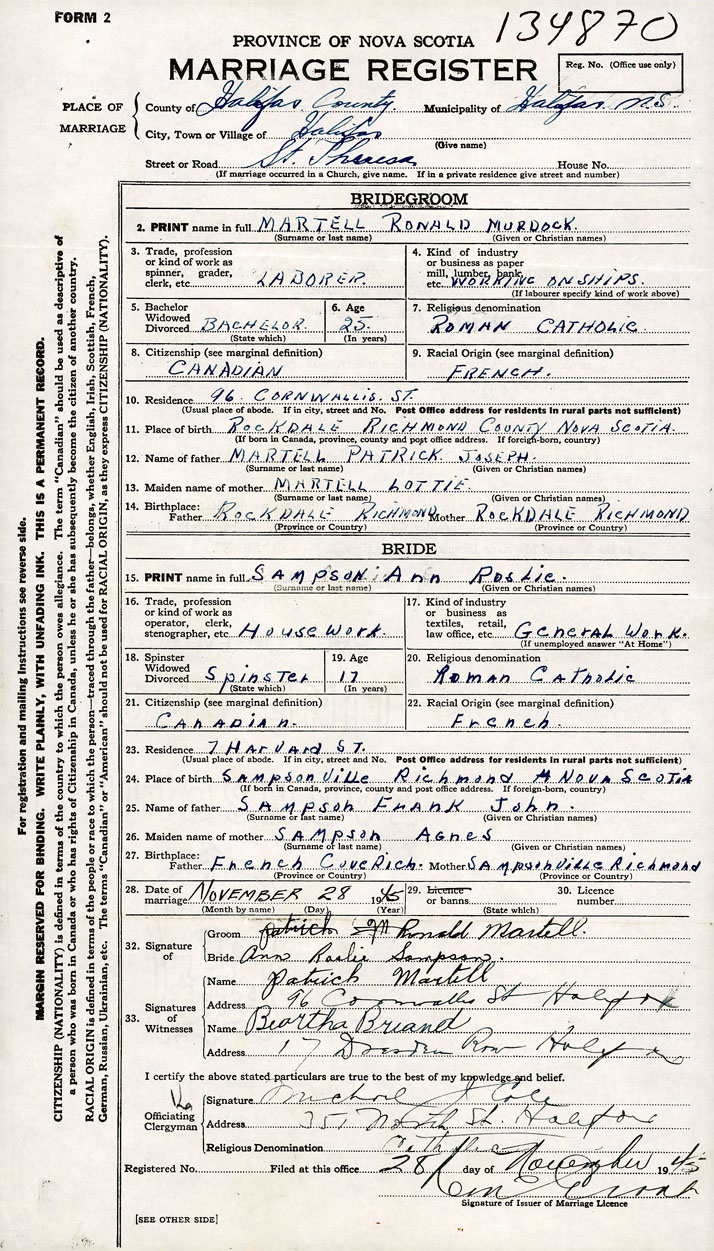 FORM 2
134870
PROVINCE OF NOVA SCOTIA
MARRIAGE REGISTER
Reg. No. (Office use only)
PLACE OF MARRIAGE
County of Halifax County. Municipality of Halifax N.S.
City, Town or Village of Halifax
(Give name)
Street or Road St. Theresa House No.
(If marriage occurred in a Church, give name. If in a private residence give street and number)
BRIDEGROOM
2. PRINT name in full MARTELL RONALD MURDOCK.
(Surname or last name) (Given or Christian names)
3. Trade, profession or kind of work as spinner, grader, clerk, etc. LABORER.
4. Kind of industry or business as paper mill, lumber, bank, etc. WORKING ON SHIPS.
(If labourer specify kind of work above)
5. Bachelor Widowed Divorced BACHELOR.
(State which)
6. Age 25.
(In years)
7. Religious denomination
ROMAN CATHOLIC.
8. Citizenship (see marginal definition)
CANADIAN
9. Racial Origin (see marginal definition)
FRENCH.
10. Residence 96 CORNWALLIS. ST.
(Usual place of abode. If in city, street and No. Post Office address for residents in rural parts not sufficient)
11. Place of birth ROCKDALE RICHMOND COUNTY NOVA SCOTIA.
(If born in Canada, province, county and post office address. If foreign-born, country)
12. Name of father MARTELL PATRICK JOSEPH.
(Surname or last name) (Given or Christian names)
13. Maiden name of mother MARTELL LOTTIE.
(Surname or last name) (Given or Christian names)
14. Birthplace: Father ROCKDALE RICHMOND Mother ROCKDALE RICHMOND
(Province or Country) (Province or Country)
BRIDE
15. PRINT name in full SAMPSON Ann Roslie.
(Surname or last name) (Given or Christian names)
16. Trade, profession or kind of work as operator, clerk, stenographer, etc. House Work.
17. Kind of industry or business as textiles, retail, law office, etc. General Work.
(If unemployed answer "At Home")
18. Spinster Widowed Divorced Spinster
(State which)
19. Age 17
(In years)
20. Religious denomination
Roman Catholic
21. Citizenship (see marginal definition)
Canadian.
22. Racial Origin (see marginal definition)
French.
23. Residence 7 Harvard ST.
(Usual place of abode. If in city, street and No. Post Office address for residents in rural parts not sufficient)
24. Place of birth Sampsonville Richmond Nova Scotia
(If born in Canada, province, county and post office address. If foreign-born, country)
25. Name of father Sampson Frank John.
(Surname or last name) (Given or Christian names)
26. Maiden name of mother Sampson Agnes
(Surname or last name) (Given or Christian names)
27. Birthplace: Father French Cove Rich. Mother Sampsonville Richmond
(Province or Country) (Province or Country)
28. Date of marriage NOVEMBER 28 1945
(Month by name) (Day) (Year)
29. Licence or banns
(State which)
30. Licence number
32. Signature of
Groom Patrick Ronald Martell.
Bride Ann Roslie Sampson.
33. Signatures of Witnesses
Name Patrick Martell
Address 96 Cornwallis St Halifax
Name Beartha Briand
Address 17 Dresden Row Halifax
I certify the above stated particulars are true to the best of my knowledge and belief.
Officiating Clergyman
Signature Michael J Cole
Address 351 North St. Halifax
Religious Denomination Catholic
Registered No. Filed at this office 28 day of November 1945
Signature of Issuer of Marriage Licence
[SEE OTHER SIDE]
For registration and mailing instructions see reverse side.
MARGIN RESERVED FOR BINDING. WRITE PLAINLY, WITH UNFADING INK. THIS IS A PERMANENT RECORD.
CITIZENSHIP (NATIONALITY) is defined in terms of the country to which the person owes allegiance. The term "Canadian" should be used as descriptive of
a person who was born in Canada or who has rights of Citizenship in Canada, unless he or she has subsequently become the citizen of another country.
RACIAL ORIGIN is defined in terms of the people or race to which the person—traced through the father—belongs, whether English, Irish, Scottish, French,
German, Russian, Ukrainian, etc. The terms "Canadian" or "American" should not be used for RACIAL ORIGIN, as they express CITIZENSHIP (NATIONALITY).